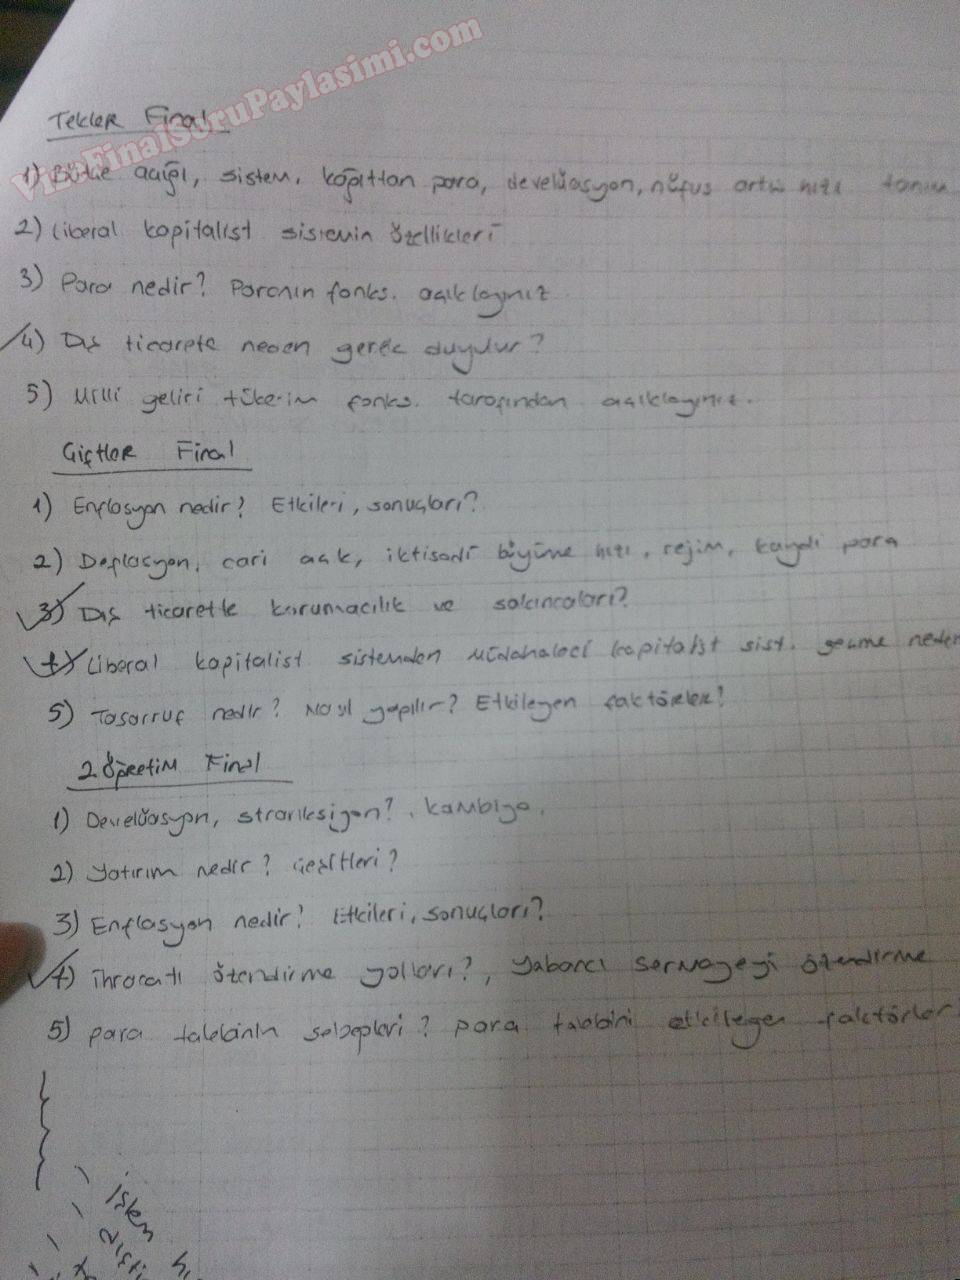 VizeFinalSoruPaylasimi.com
Tekler Final
1) Bütçe açığı, sistem, kağıttan para, develüasyon, nüfus artış hızı tanım
2) Liberal kapitalist sistemin özellikleri
3) Para nedir? Paranın fonks. açıklayınız.
4) Dış ticarete neden gerek duyulur?
5) Milli geliri tüketim fonks. tarafından açıklayınız.
Çiftler Final
1) Enflasyon nedir? Etkileri, sonuçları?
2) Deflasyon, cari açık, iktisadi büyüme hızı, rejim, kaydi para
3) Dış ticarette korumacılık ve sakıncaları?
4) Liberal kapitalist sistemden müdahaleci kapitalist sist. geçme neden
5) Tasarruf nedir? Nasıl yapılır? Etkileyen faktörler?
2. Öğretim Final
1) Develüasyon, kambiyo.
2) Yatırım nedir? Çeşitleri?
3) Enflasyon nedir? Etkileri, sonuçları?
4) İhracatı özendirme yolları?, yabancı sermayeyi özendirme
5) Para talebinin sebepleri? Para talebini etkileyen faktörler